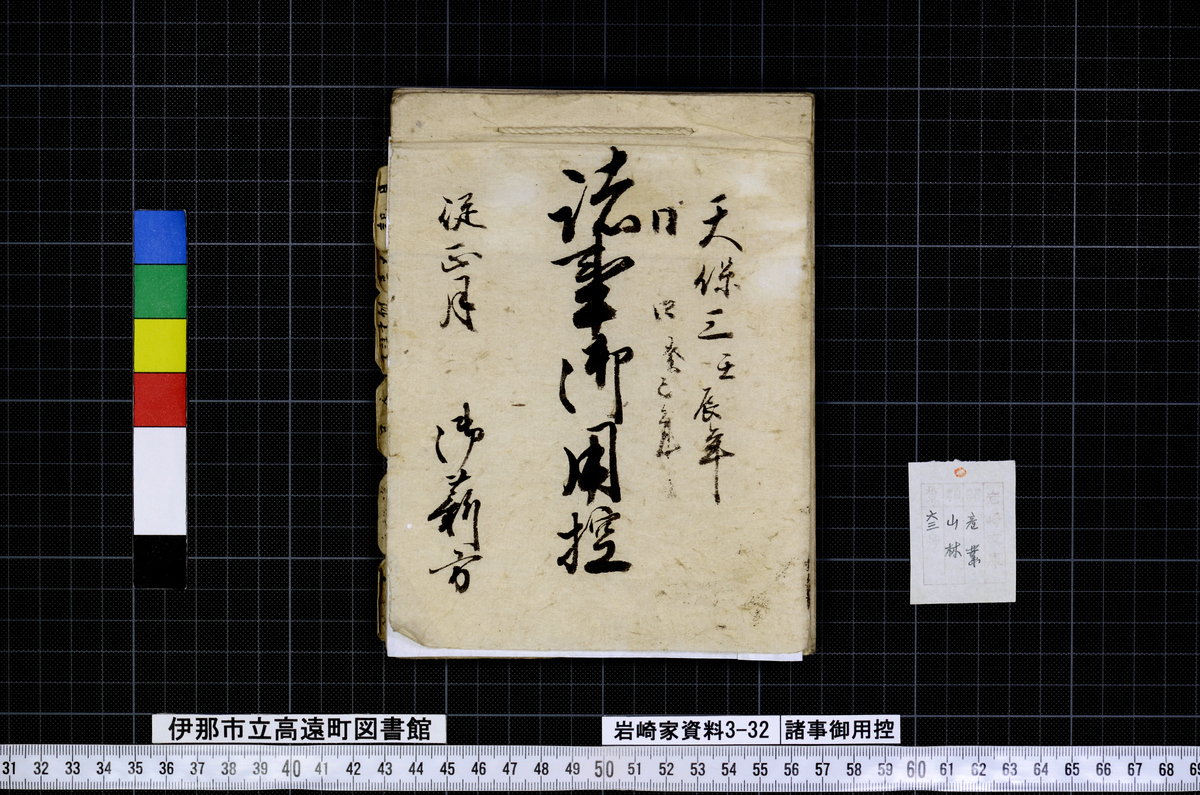 天保三壬辰年
同 四癸巳年
諸事御用控
従正月 御薪方
産業
山林
六三
伊那市立高遠町図書館
岩崎家資料3-32 諸事御用控
31 32 33 34 35 36 37 38 39 40 41 42 43 44 45 46 47 48 49 50 51 52 53 54 55 56 57 58 59 60 61 62 63 64 65 66 67 68 69